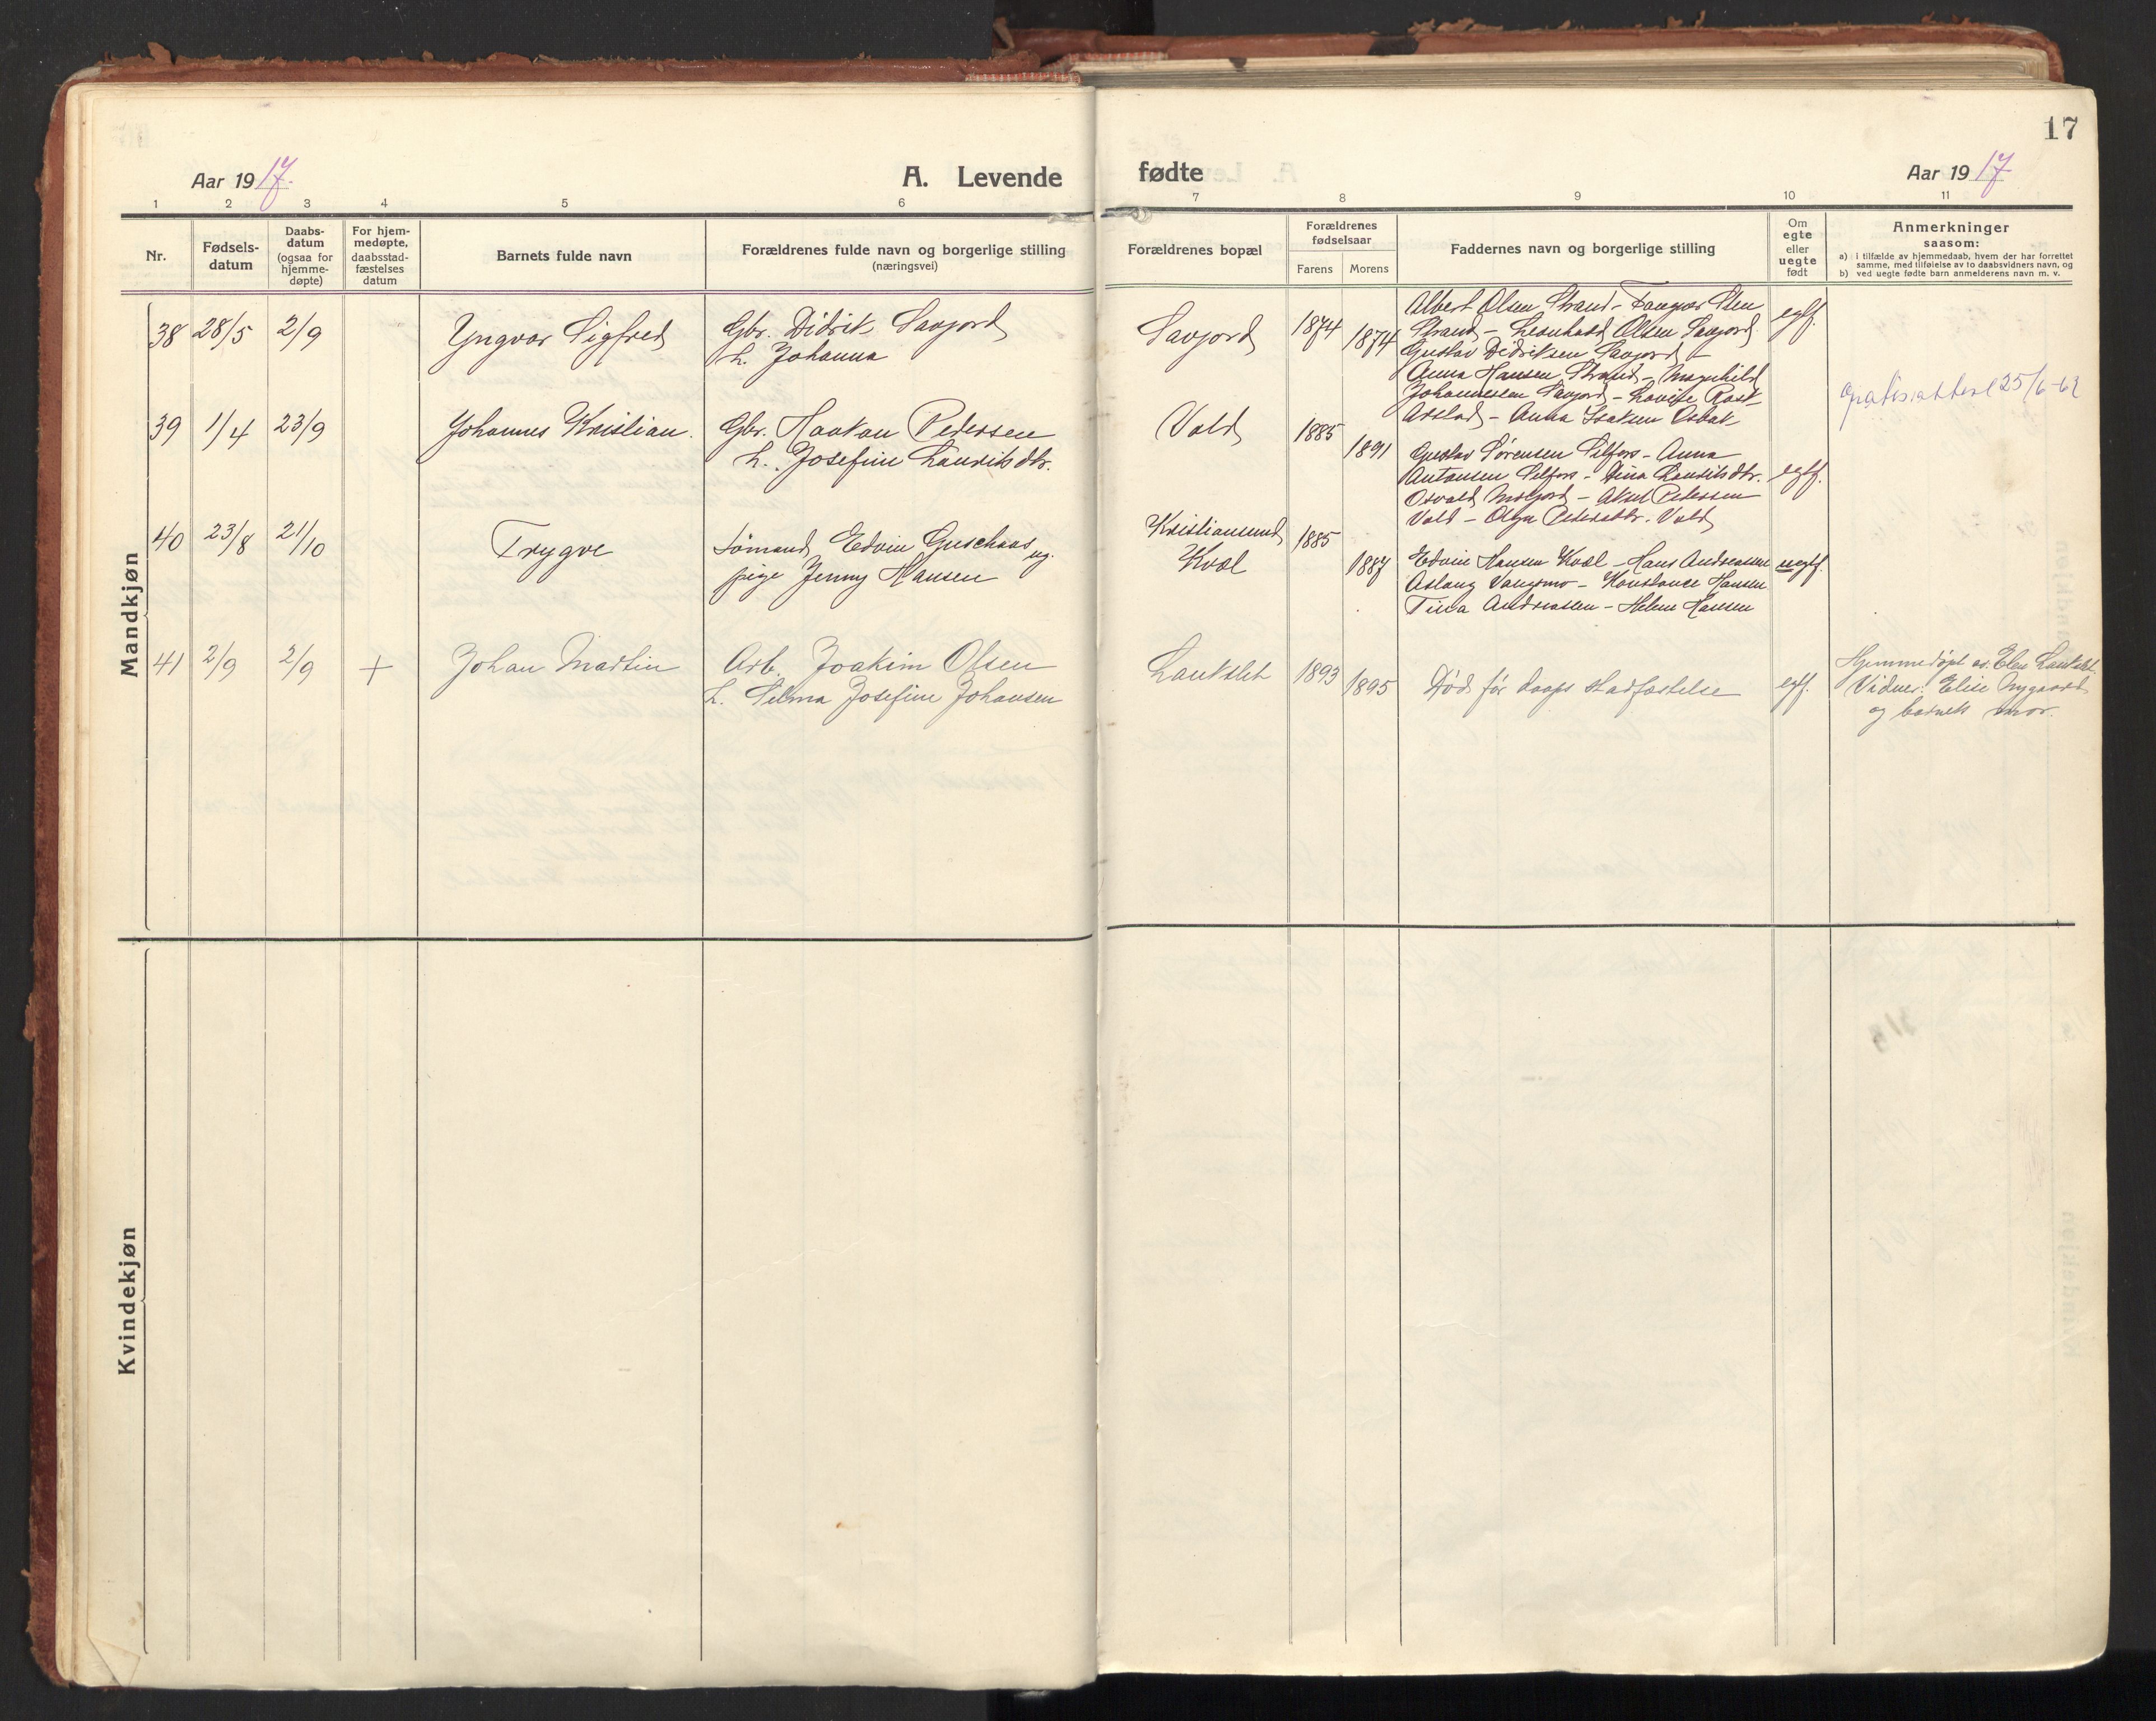 17
Aar 1917. A. Levende fødte Aar 1917
1 2 3 4 5 6 7 8 9 10 11
Nr.
Fødsels-
datum
Daabs-
datum
(ogsaa for
hjemme-
døpte)
For hjem-
medøpte,
daabsstad-
fæstelses
datum
Barnets fulde navn
Forældrenes fulde navn og borgerlige stilling
(næringsvei)
Forældrenes bopæl
Forældrenes
fødselsaar
Farens Morens
Faddernes navn og borgerlige stilling
Om
egte
eller
uegte
født
Anmerkninger
saasom:
a) i tilfælde av hjemmedaab, hvem der har forrettet
samme, med tilføielse av to daabsvidners navn, og
b) ved uegte fødte barn anmelderens navn m. v.
Mandkjøn
38 28/5 2/9
Yngvar Sigfred
Gbr. Didrik Savjord
h. Johanna
Savjord
1874
1874
Albert Olsen Strand - Olsen
Strand - Leonhard Olsen Savjord
Gustav Didriksen Savjord -
Anna Hansen Strand - Magnhild
Johannessen Savjord - Lovise
- Anna Isaksen Osbak
egtf.
25/6-62
39 1/4 23/9
Johannes Kristian.
Gbr. Haakon Pedersen
h. Josefine Lauritsdtr.
Vold
1885
1891
Gustav Sørensen Selfors - Anna
Antonsen Selfors - Lauritsdtr.
Osvald - Aksel Pedersen
Vold - Olga Pedersdtr. Vold
egtf.
40 23/8 21/10
Trygve
Sømand Edvin og
pige Jenny Hansen
Kristiansund
Kvæl
1885
1887
Edvin Hansen Kvæl - Hans Andreassen
Aslaug - Konstance Hansen
Tina Andreassen - Helene Hansen
uegtf.
41 2/9 2/9 +
Johan Martin
Arb. Joakim Olsen
h. Selma Josefine Johansen
Laukslet
1893
1895
Død før daaps stadfæstelse
egtf.
Hjemmedøpt av Elen Laukslet.
Vidner: Elise Nygaard
og barnets mor.
Kvindekjøn